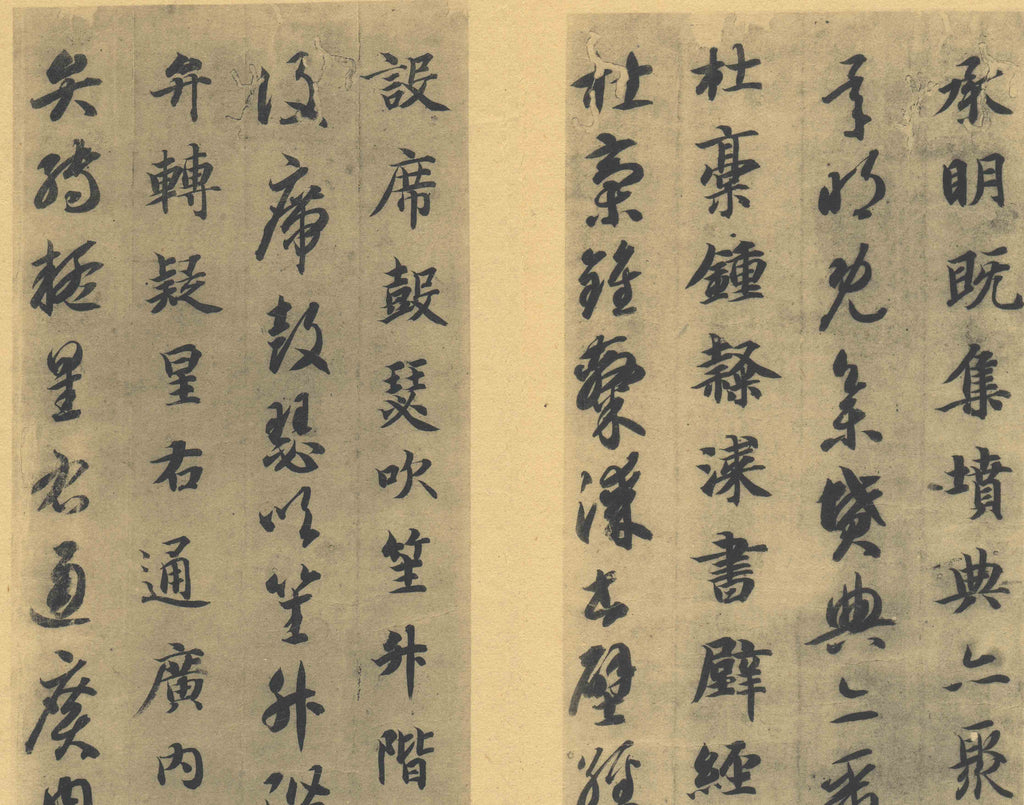 承明既集墳典亦聚
承明既集墳典亦聚
杜稾鍾隸漆書壁經
杜稾鍾隸漆書壁經
設席鼓瑟吹笙升階
設席鼓瑟吹笙升階
弁轉疑星右通廣内
弁轉疑星右通廣内